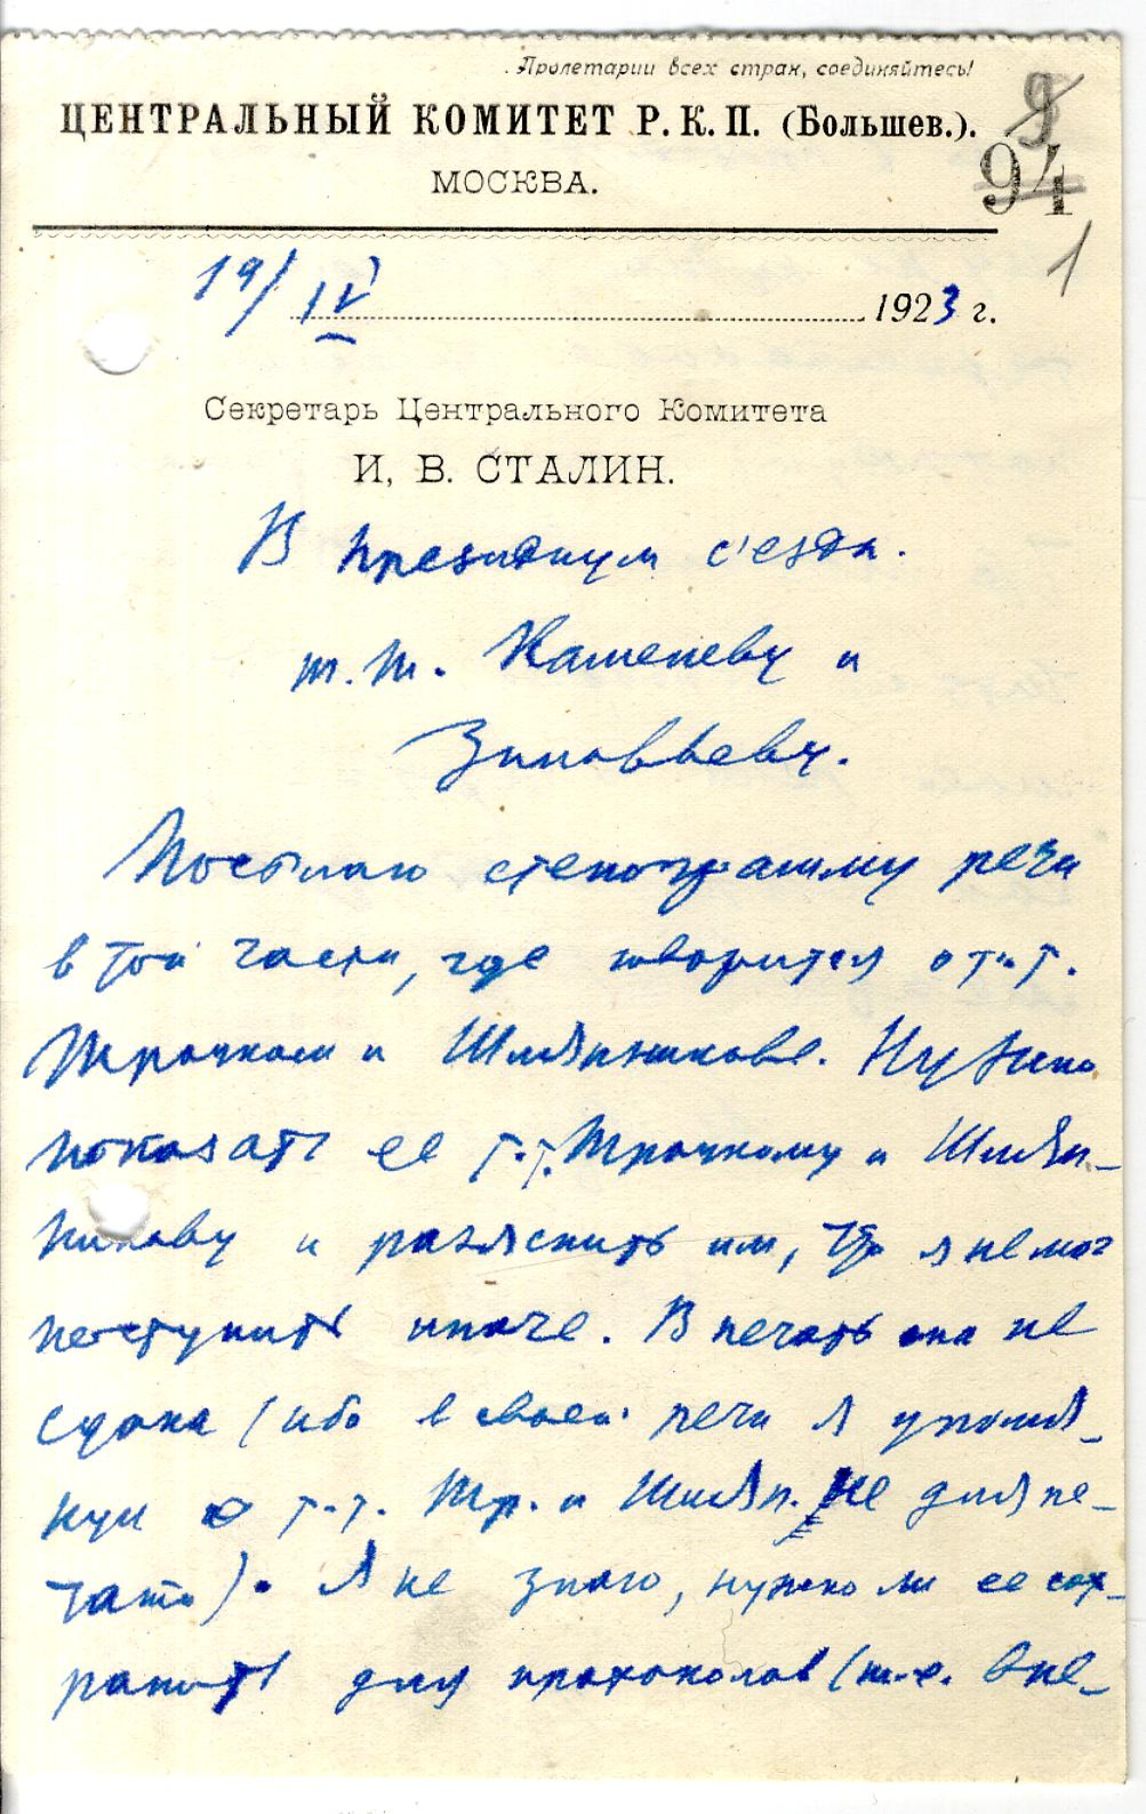 Пролетарии всех стран, соединяйтесь!
ЦЕНТРАЛЬНЫЙ КОМИТЕТ Р. К. П. (Большев.).
МОСКВА.
9
94
1
19/IV 1923 г.
Секретарь Центрального Комитета
И. В. СТАЛИН.
В президиум с'езда.
т.т. Каменеву и
Зиновьеву.
Посылаю стенограмму речи
в той части, где говорится о т.т.
Троцком и Шляпникове. Нужно
показать ее т.т. Троцкому и Шляп-
никову и раз'яснить им, что я не мог
поступить иначе. В печать она не
сдана (ибо в своей речи я упомя-
нул о т.т. Тр. и Шляп. не для пе-
чати). Я не знаю, нужно ли ее сох-
ранить для протоколов (т.е. вне-